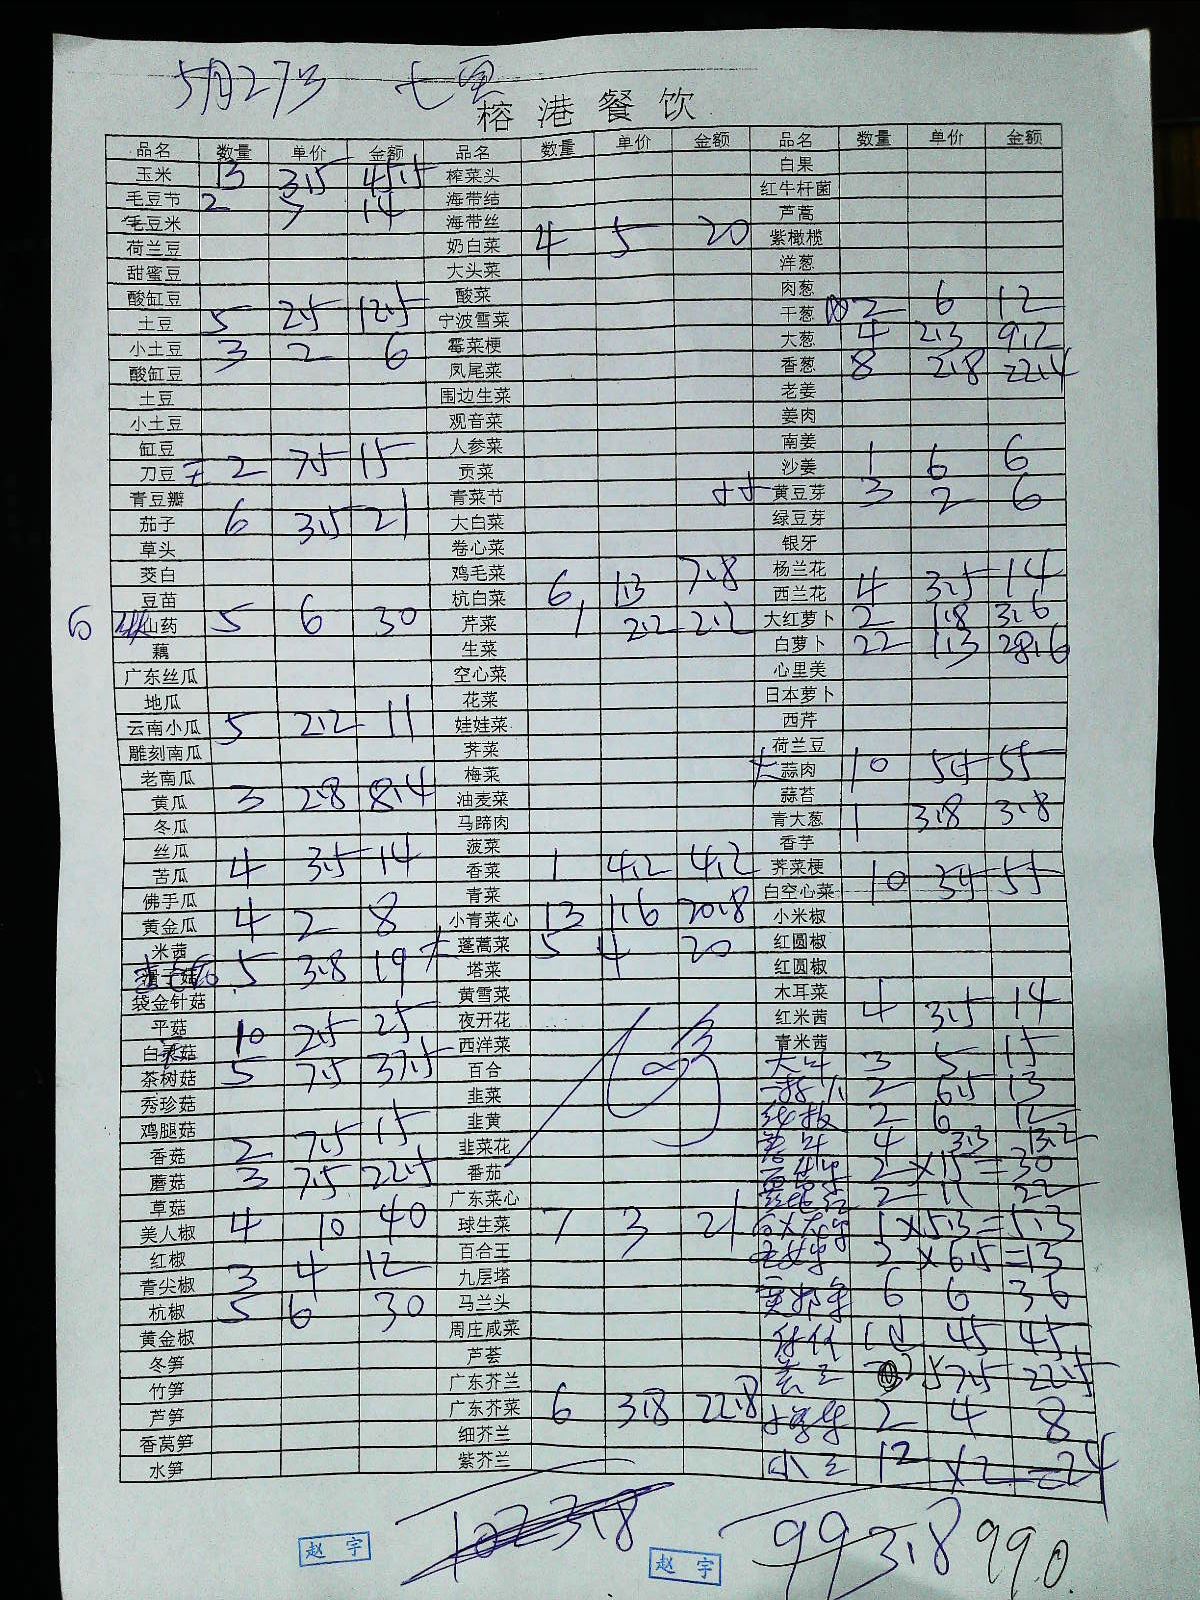 5月27号
榕港餐饮
品名 数量 单价 金额 品名 数量 单价 金额 品名 数量 单价 金额
玉米 13 3.5 45.5 榨菜头 白果
毛豆节 2 7 14 海带结 红牛杆菌
毛豆米 海带丝 芦蒿
荷兰豆 奶白菜 4 5 20 紫橄榄
甜蜜豆 大头菜 洋葱
酸缸豆 酸菜 肉葱
土豆 5 2.5 12.5 宁波雪菜 干葱 2 6 12
小土豆 3 2 6 霉菜梗 大葱 4 2.3 9.2
酸缸豆 凤尾菜 香葱 8 2.8 22.4
土豆 围边生菜 老姜
小土豆 观音菜 姜肉
缸豆 人参菜 南姜
刀豆 2 7.5 15 贡菜 沙姜 1 6 6
青豆瓣 青菜节 黄豆芽 3 2 6
茄子 6 3.5 21 大白菜 绿豆芽
草头 卷心菜 银牙
茭白 鸡毛菜 杨兰花
豆苗 杭白菜 6 1.3 7.8 西兰花 4 3.5 14
山药 5 6 30 芹菜 1 2.2 2.2 大红萝卜 2 1.8 3.6
藕 生菜 白萝卜 22 1.3 28.6
广东丝瓜 空心菜 心里美
地瓜 花菜 日本萝卜
云南小瓜 5 2.2 11 娃娃菜 西芹
雕刻南瓜 荠菜 荷兰豆
老南瓜 梅菜 蒜肉 10 5.5 55
黄瓜 3 2.8 8.4 油麦菜 蒜苔
冬瓜 马蹄肉 青大葱 1 3.8 3.8
丝瓜 菠菜 香芋
苦瓜 4 3.5 14 香菜 1 4.2 4.2 荠菜梗
佛手瓜 青菜 白空心菜 10 55
黄金瓜 4 2 8 小青菜心 13 1.6 20.8 小米椒
米茜 蓬蒿菜 5 4 20 红圆椒
5 3.8 19 塔菜 红圆椒
袋金针菇 黄雪菜 木耳菜
平菇 10 2.5 25 夜开花 红米茜 4 3.5 14
白灵菇 西洋菜 青米茜
茶树菇 5 7.5 37.5 百合 3 5 15
秀珍菇 韭菜 2 6.5 13
鸡腿菇 韭黄 2 6 12
香菇 2 7.5 15 韭菜花 4 3.3 13.2
蘑菇 3 7.5 22.5 番茄 2 ×15=30
草菇 广东菜心 2 11 22
美人椒 4 10 40 球生菜 7 3 21 1×5.3=5.3
红椒 百合王 2 ×6.5=13
青尖椒 3 4 12 九层塔 6 6 36
杭椒 5 6 30 马兰头
黄金椒 周庄咸菜 4.5 45
冬笋 芦荟 7.5 22.5
竹笋 广东芥兰 2 4 8
芦笋 广东芥菜 6 3.8 22.8
香莴笋 细芥兰 12 ×2=24
水笋 紫芥兰
1023.8 993.8 990.
赵宇 赵宇